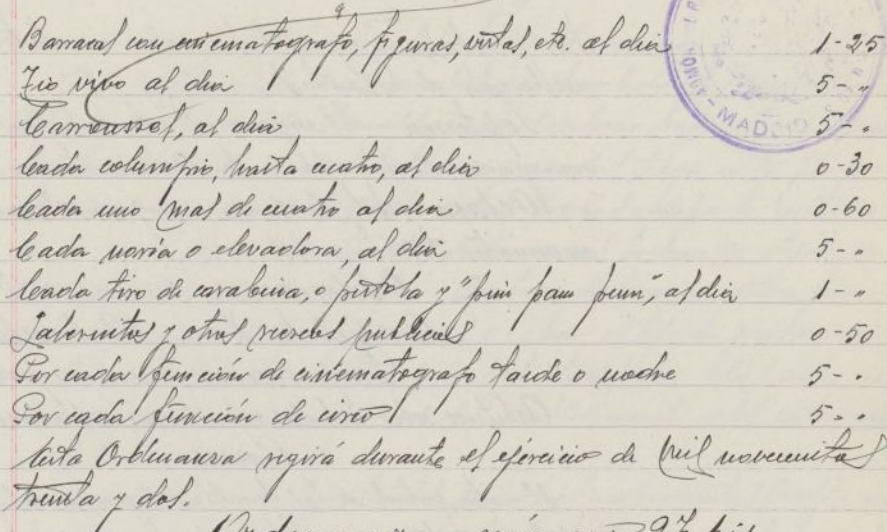 Barracas con cinematografo, figuras, vistas, etc. al dia 1-25
Tio vivo al dia 5-"
Carroussel, al dia 5-"
Cada columpio, hasta cuatro, al dia 0-30
Cada uno mas de cuatro al dia 0-60
Cada noria o elevadora, al dia 5-"
Cada tiro de carabina, o pistola y "pim pam pum", al dia 1-"
Tabernitas y otros recreos publicos 0-50
Por cada función de cinematografo tarde o noche 5-"
Por cada función de circo 5-"
Esta Ordenanza regirá durante el ejercicio de mil novecientos
treinta y dos.
MADRID